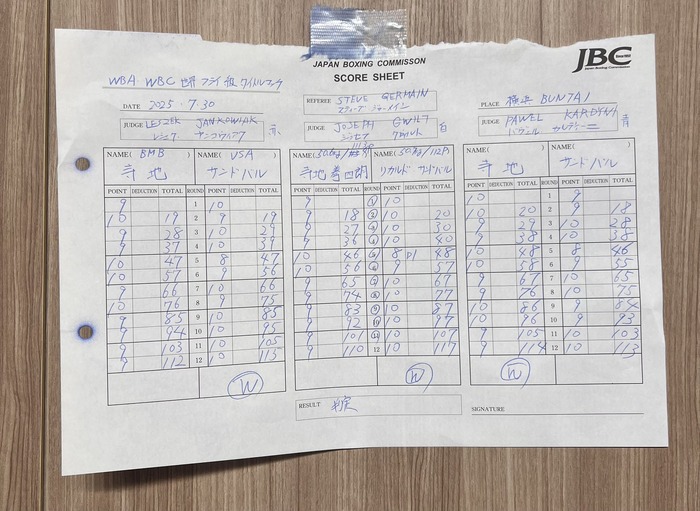 JAPAN BOXING COMMISSON
SCORE SHEET
JBC
Japan Boxing Commission
WBA WBC 世界 フライ級 タイトルマッチ
DATE 2025.7.30
REFEREE STEVE GERMAIN
PLACE 横浜 BUNTAI
JUDGE LESZEK JANKOWIAK
レシェク ヤンコヴィアク 赤
JUDGE JOSEPH GWILT
ジョセフ グウィルト 白
JUDGE PAWEL KARDYNI
パヴェル カルディーニ 青
NAME( BMB ) NAME( USA )
寺地 サンドバル
POINT DEDUCTION TOTAL ROUND POINT DEDUCTION TOTAL
9 1 10
10 19 2 9 19
9 28 3 10 29
9 37 4 10 39
10 47 5 8 47
10 57 6 9 56
9 66 7 10 66
10 76 8 9 75
9 85 9 10 85
9 94 10 10 95
9 103 11 10 105
9 112 12 10 115
W
寺地拳四朗 リカルド サンドバル
POINT DEDUCTION TOTAL ROUND POINT DEDUCTION TOTAL
9 1 10
9 18 2 10 20
9 27 3 10 30
9 36 4 10 40
10 46 5 8 D1 48
10 56 6 9 57
9 65 7 10 67
9 74 8 10 77
9 83 9 10 87
9 92 10 10 97
9 101 11 10 107
9 110 12 10 117
W
NAME( ) NAME( )
寺地 サンドバル
POINT DEDUCTION TOTAL ROUND POINT DEDUCTION TOTAL
10 1 9
10 20 2 9 18
9 29 3 10 28
9 38 4 10 38
10 48 5 8 46
10 58 6 9 55
9 67 7 10 65
9 76 8 10 75
10 86 9 9 84
10 96 10 9 93
9 105 11 10 103
9 114 12 10 113
W
RESULT 判定
SIGNATURE